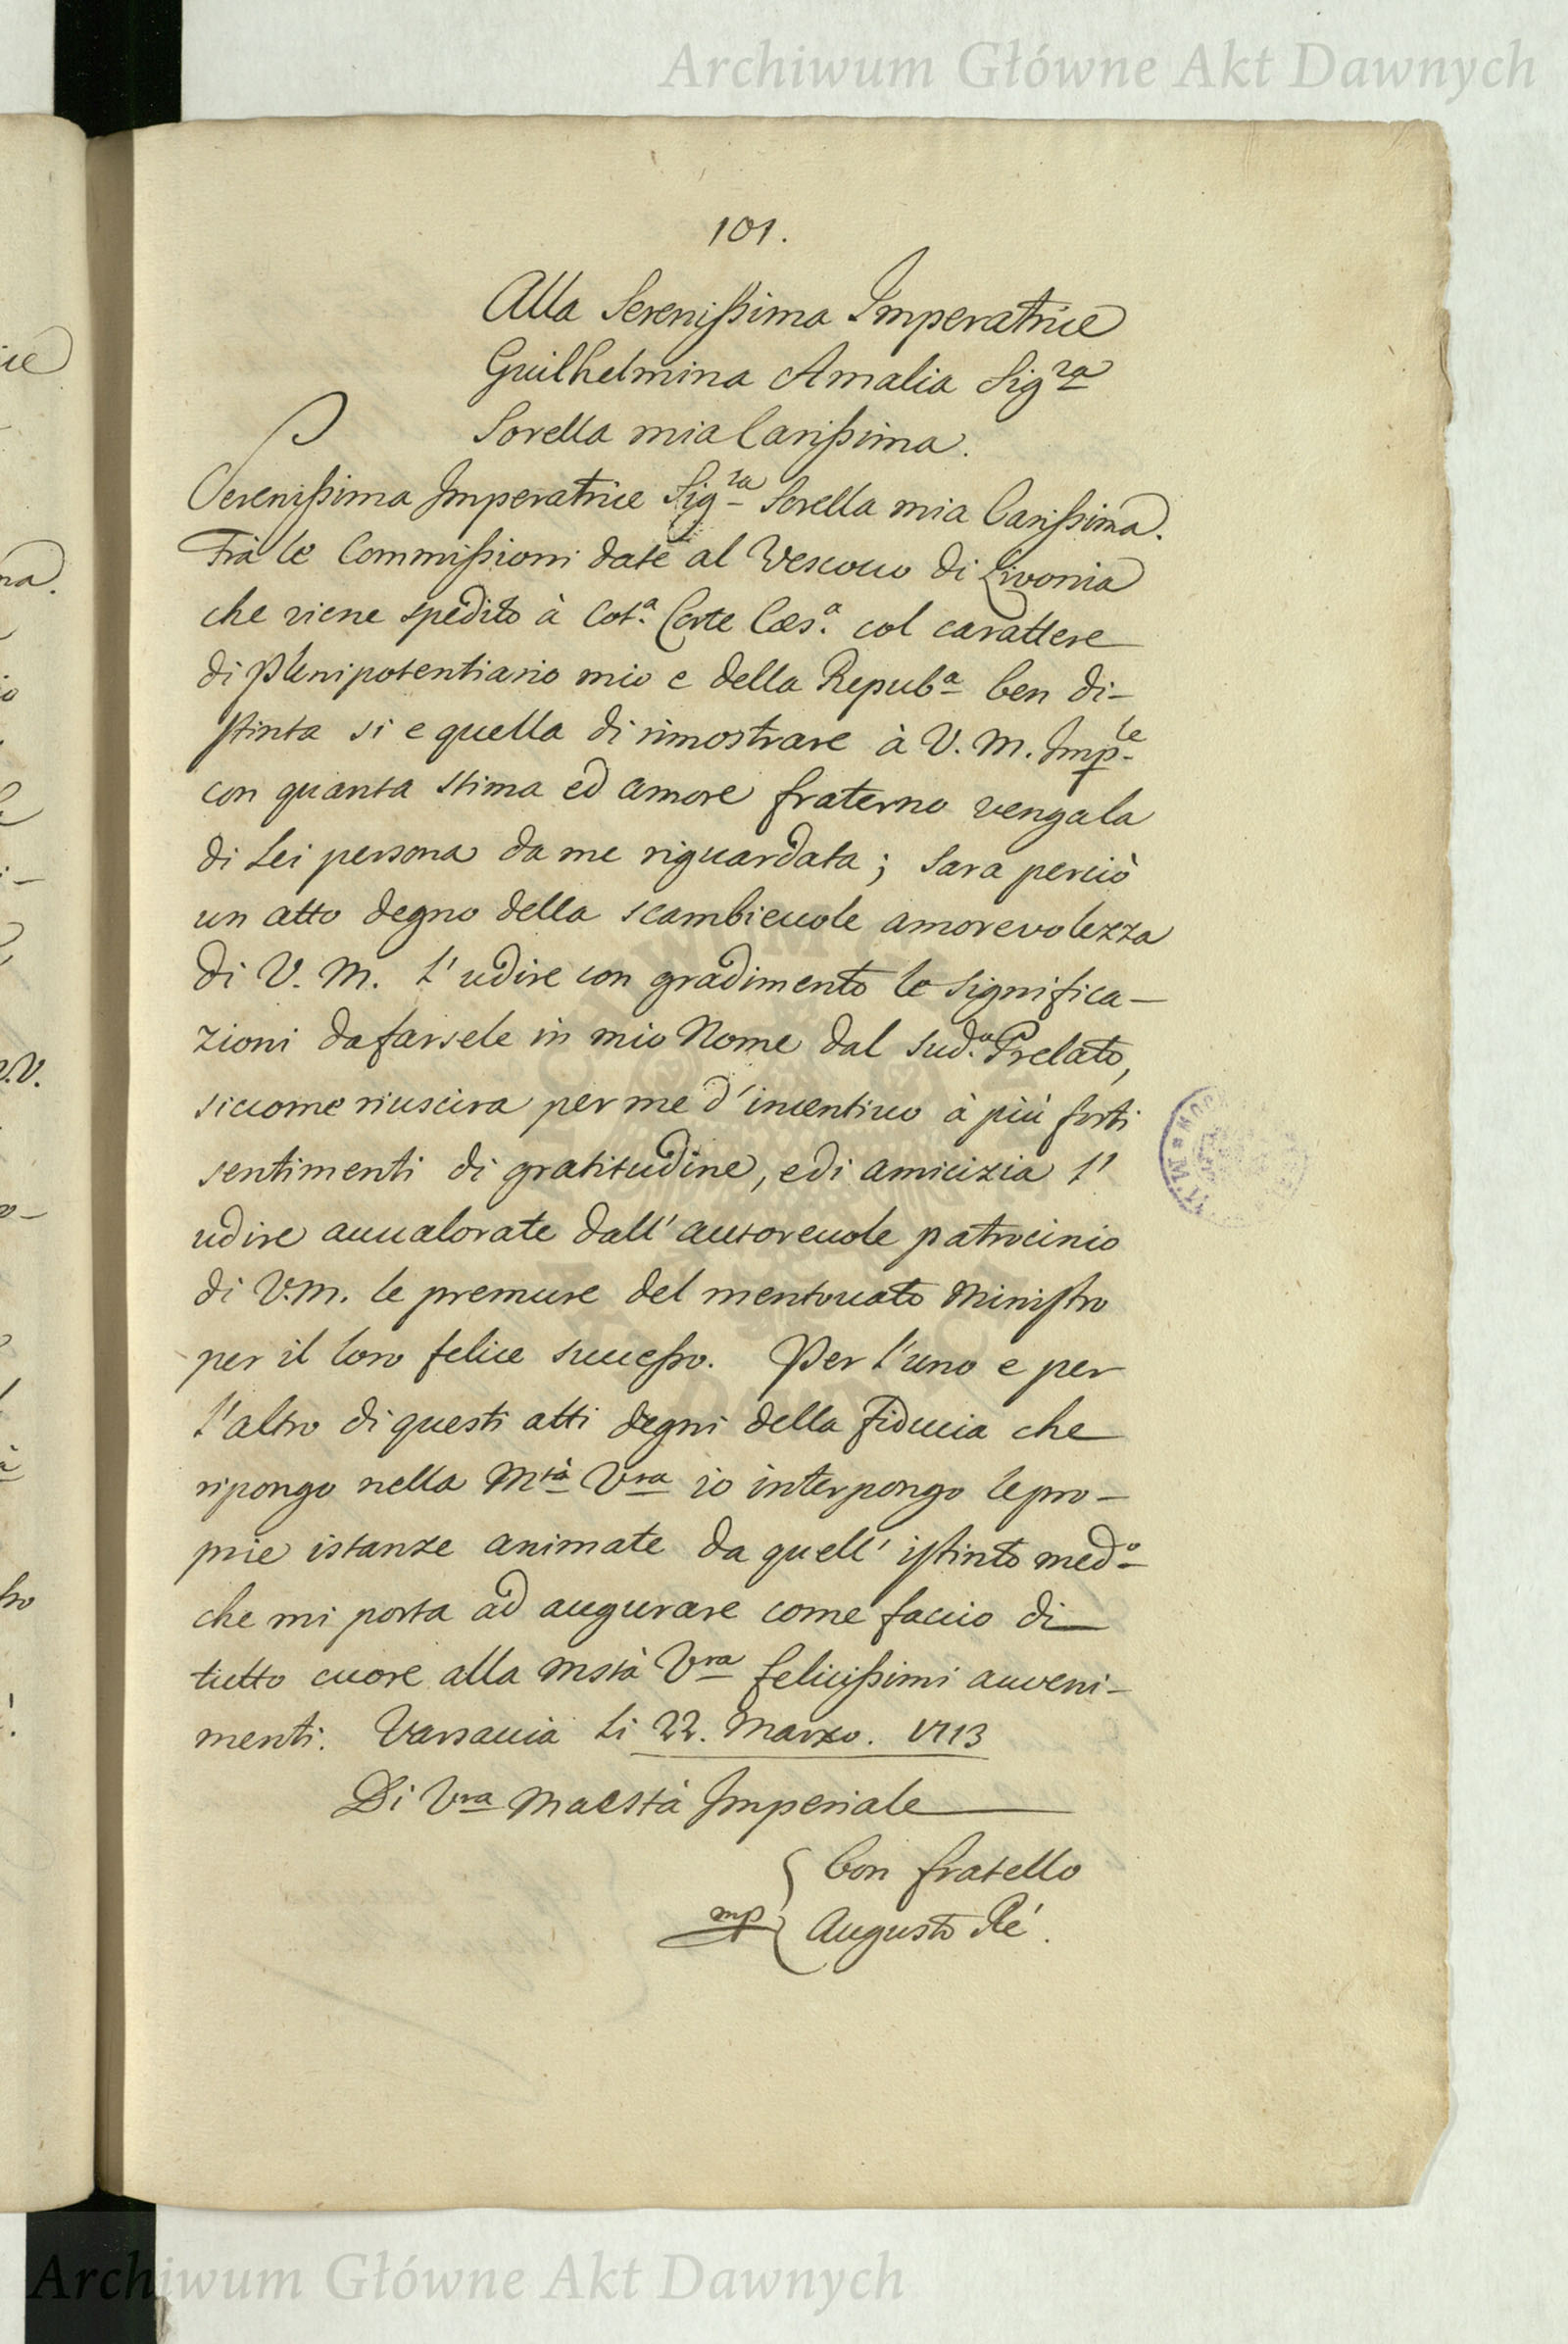 Archiwum Główne Akt Dawnych
101.
Alla Serenissima Imperatrice
Guilhelmina Amalia Sig.ra
Sorella mia Carissima.
Serenissima Imperatrice Sig.ra Sorella mia Carissima.
Frà le Commissioni date al Vescouo di Livonia
che viene spedito à Cot.a Corte Cæs.a col carattere
di Plenipotentiario mio e della Repub.a ben di-
stinta si e quella di rimostrare à V. M. Imp.le
con quanta stima ed amore fraterno venga la
di Lei persona da me riguardata; Sara perciò
un atto degno della scambieuole amorevolezza
di V. M. l'udire con gradimento le significa-
zioni da farsele in mio Nome dal sud.o Prelato,
siccome riuscira per me d'incentiuo à più forti
sentimenti di gratitudine, e di amicizia l'
udire auualorate dall'autoreuole patrocinio
di V.M. le premure del mentouato Ministro
per il loro felice successo. Per l'uno e per
l'altro di questi atti degni della Fiducia che
ripongo nella Mtà Vra io interpongo le pro-
prie istanze animate da quell'istinto med.o
che mi porta ad augurare come faccio di
tutto cuore alla Mstà Vra felicissimi auveni-
menti. Varsauia li 22. Marzo. 1713
Di Vra Maestà Imperiale
bon fratello
mp Augusto Ré.
Archiwum Główne Akt Dawnych